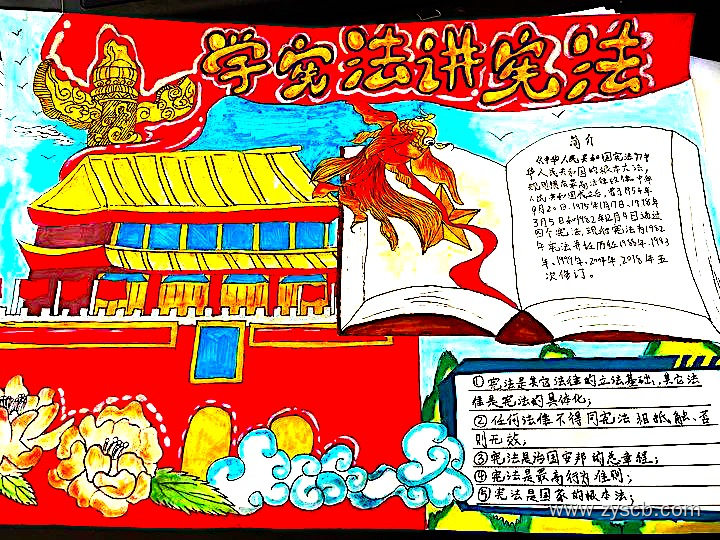 学宪法讲宪法
简介
《中华人民共和国宪法》是中
华人民共和国的根本大法,
规定拥有最高法律效力。中华
人民共和国成立后,曾于1954年
9月20日、1975年1月17日、1978年
3月5日和1982年12月4日通过
四个宪法,现行宪法为1982
年宪法并经历经1988年、1993
年、1999年、2004年、2018年五
次修订。
①宪法是其它法律的立法基础,其它法
律是宪法的具体化;
②任何法律不得同宪法相抵触、否
则无效;
③宪法是治国安邦的总章程;
④宪法是最高行为准则;
⑤宪法是国家的根本法;
www.zyscb.com